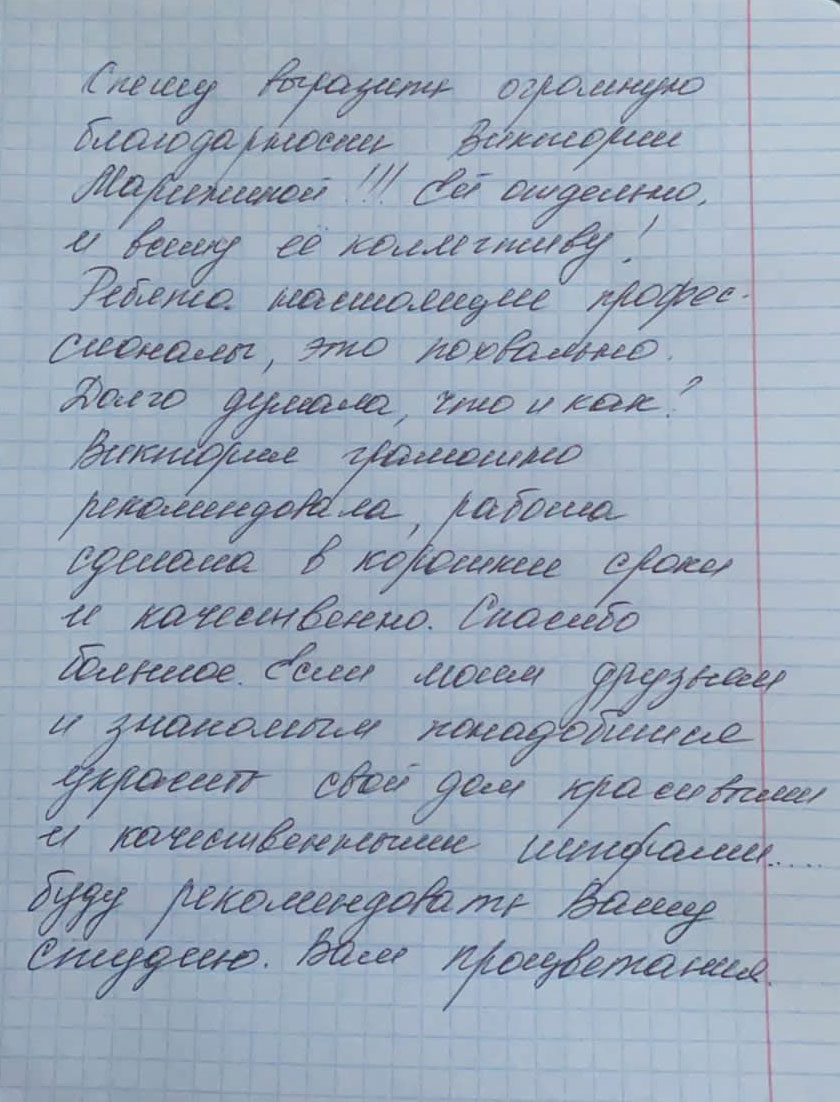 Спешу выразить огромную
благодарность Виктории
Марининой!!! Ей отдельно,
и всему её коллективу!
Ребята настоящие профес-
сионалы, это похвально.
Долго думала, что и как?
Виктория грамотно
рекомендовала, работа
сделана в короткие сроки
и качественно. Спасибо
большое. Если моим друзьям
и знакомым понадобится
украсить свой дом красивыми
и качественными шторами....
буду рекомендовать Вашу
студию. Вам процветания.